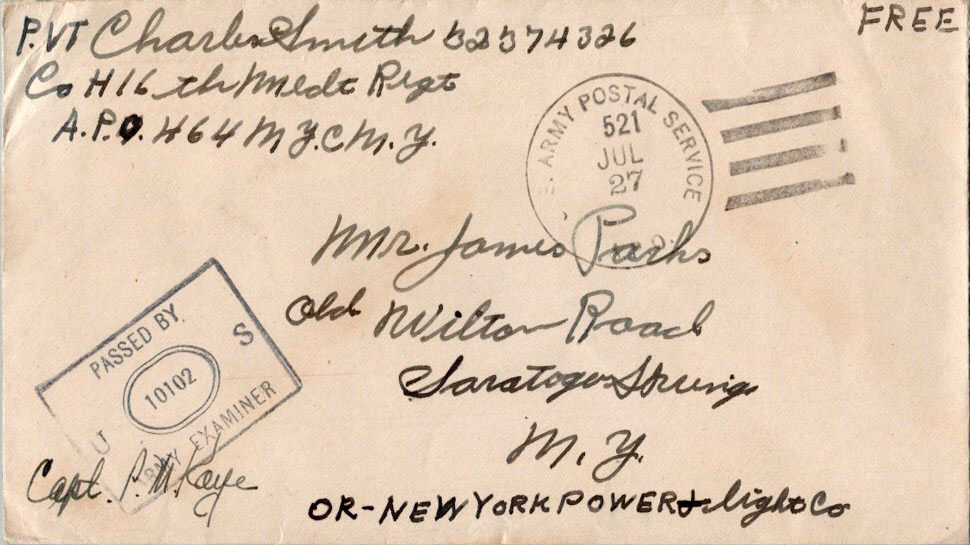 P.VT Charles Smith 32374326
FREE
Co H 16 th Medt Regt
A.P.O. 464 N.Y.C N.Y.
U.S. ARMY POSTAL SERVICE
521
JUL
27
Mr. James Parks
Old Wilton Road
Saratoga Springs
N. Y.
OR-NEW YORK POWER & light Co
PASSED BY
U S
10102
ARMY EXAMINER
Capt. P. W. Kaye